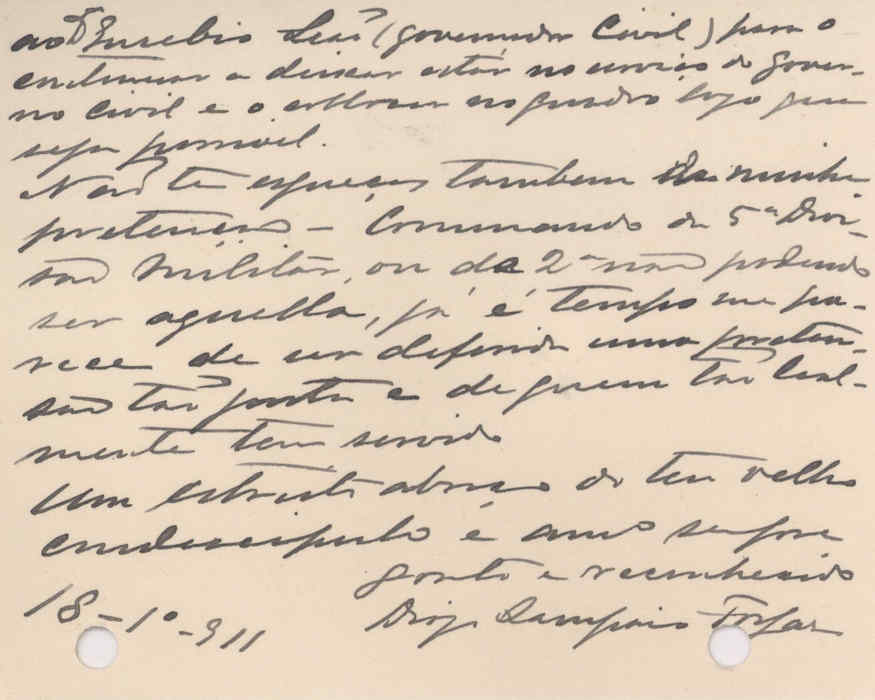 ao Dr Euzebio Leão (governador Civil) para o
continuar a deixar estar no serviço do gover-
no Civil e o collocar no quadro logo que
seja possivel.
Não te esqueças tambem da minha
pretensão – Commando da 5ª Divi-
são Militar, ou da 2ª não podendo
ser aquella, já é tempo me pa-
rece de ser deferida uma preten-
são tão justa e de quem tão leal-
mente tem servido
Um estreito abraço do teu velho
condiscipulo e amo sempre
gratº e reconhecido
Sampaio
18-1º-911